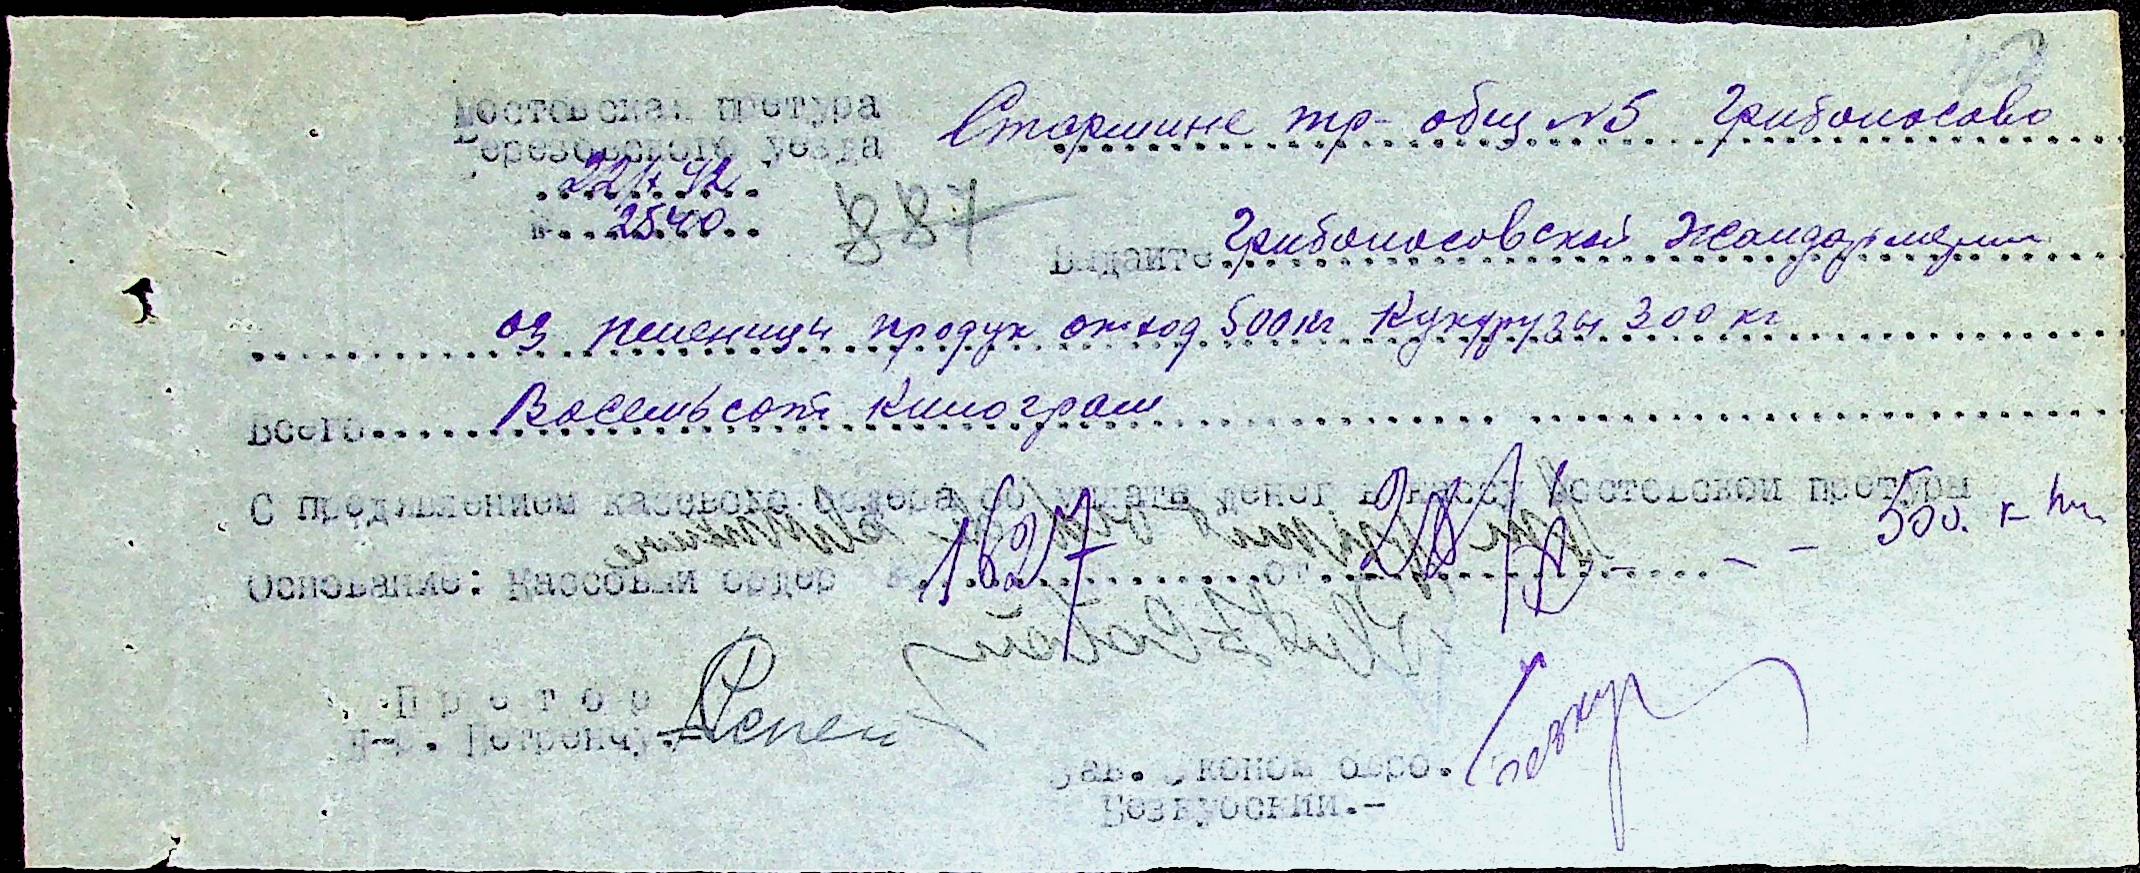 Мостовская претура
Березовского уезда
22/X 42
№ 2540
787
Старшине тр- общ №5 Грибоносово
Выдайте Грибоносовской Жандармерии
оз пшеницы продук отход 500 кг Кукурузы 300 кг
Всего Восемьсот килограм
С предявлением кассового ордера об уплате денег в кассу Мостовской претуры
500. к-
Основание: Кассовый ордер № 1627 от 20/X
Претор
Д-р. Петренчу.-
Зав. Эконом бюро.
Безкубский.-